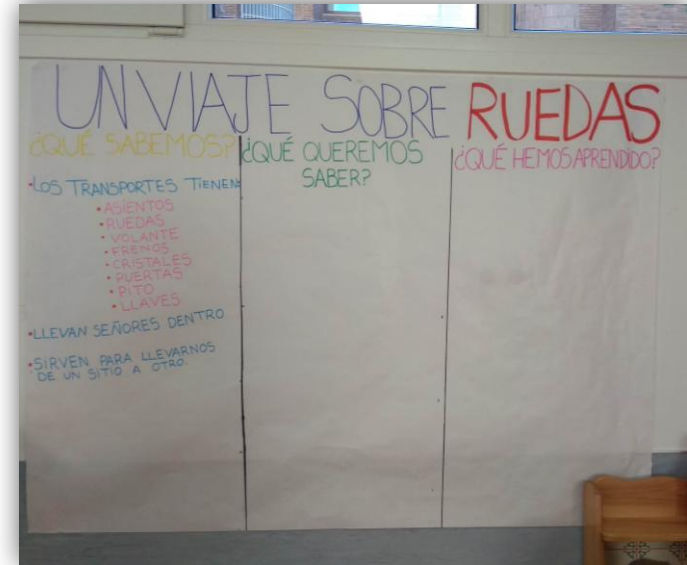 UN VIAJE SOBRE RUEDAS
¿QUÉ SABEMOS?
•LOS TRANSPORTES TIENEN:
•ASIENTOS
•RUEDAS
•VOLANTE
•FRENOS
•CRISTALES
•PUERTAS
•PITO
•LLAVES
•LLEVAN SEÑORES DENTRO
•SIRVEN PARA LLEVARNOS
DE UN SITIO A OTRO.
¿QUÉ QUEREMOS
SABER?
¿QUÉ HEMOS APRENDIDO?